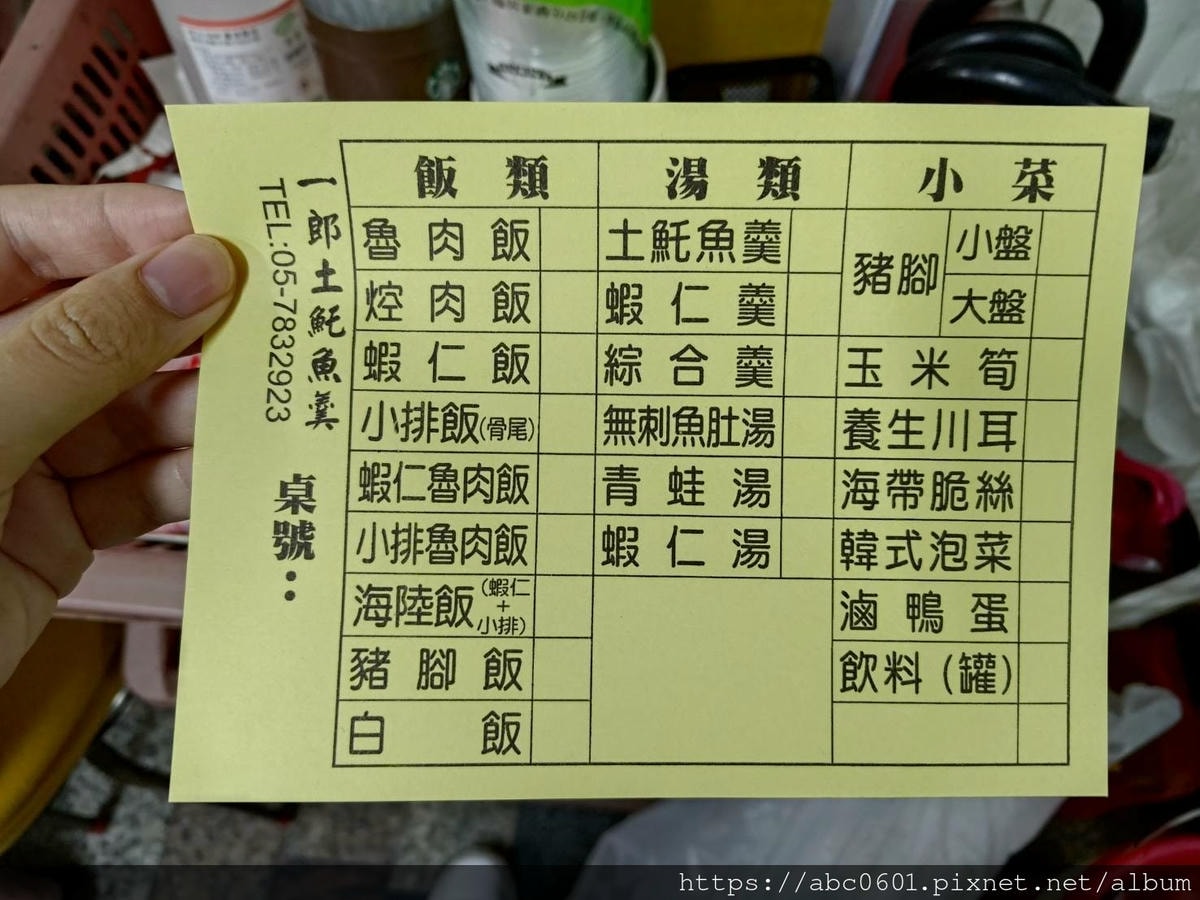 一郎土魠魚羹
TEL:05-7832923
桌號：
飯類
魯肉飯
焢肉飯
蝦仁飯
小排飯(骨尾)
蝦仁魯肉飯
小排魯肉飯
海陸飯(蝦仁+小排)
豬腳飯
白飯
湯類
土魠魚羹
蝦仁羹
綜合羹
無刺魚肚湯
青蛙湯
蝦仁湯
小菜
豬腳
小盤
大盤
玉米筍
養生川耳
海帶脆絲
韓式泡菜
滷鴨蛋
飲料(罐)
https://abc0601.pixnet.net/album